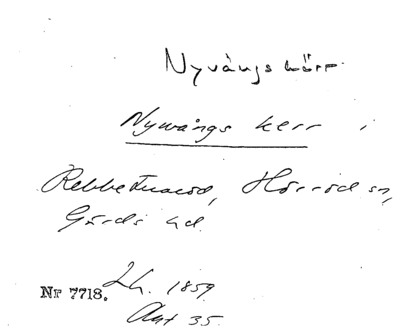 Nyvångskärr
Nywångs kerr i
Rebbetuaröd, Hörröd sn,
Gärds hd.
Lh. 1859.
Nr 7718.
Akt 35.